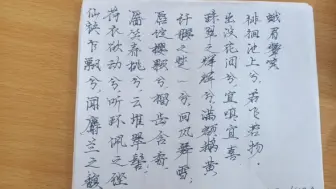 仙袂乍飘兮,闻麝兰之馥
荷衣欲动兮,听环佩之铿
靥笑春桃兮,云堆翠髻;
唇绽樱颗兮,榴齿含香
纤腰之楚兮,回风舞雪;
珠翠之辉辉兮,满额鹅黄
出没花间兮,宜嗔宜喜
徘徊池上兮,若飞若扬。
蛾眉颦笑